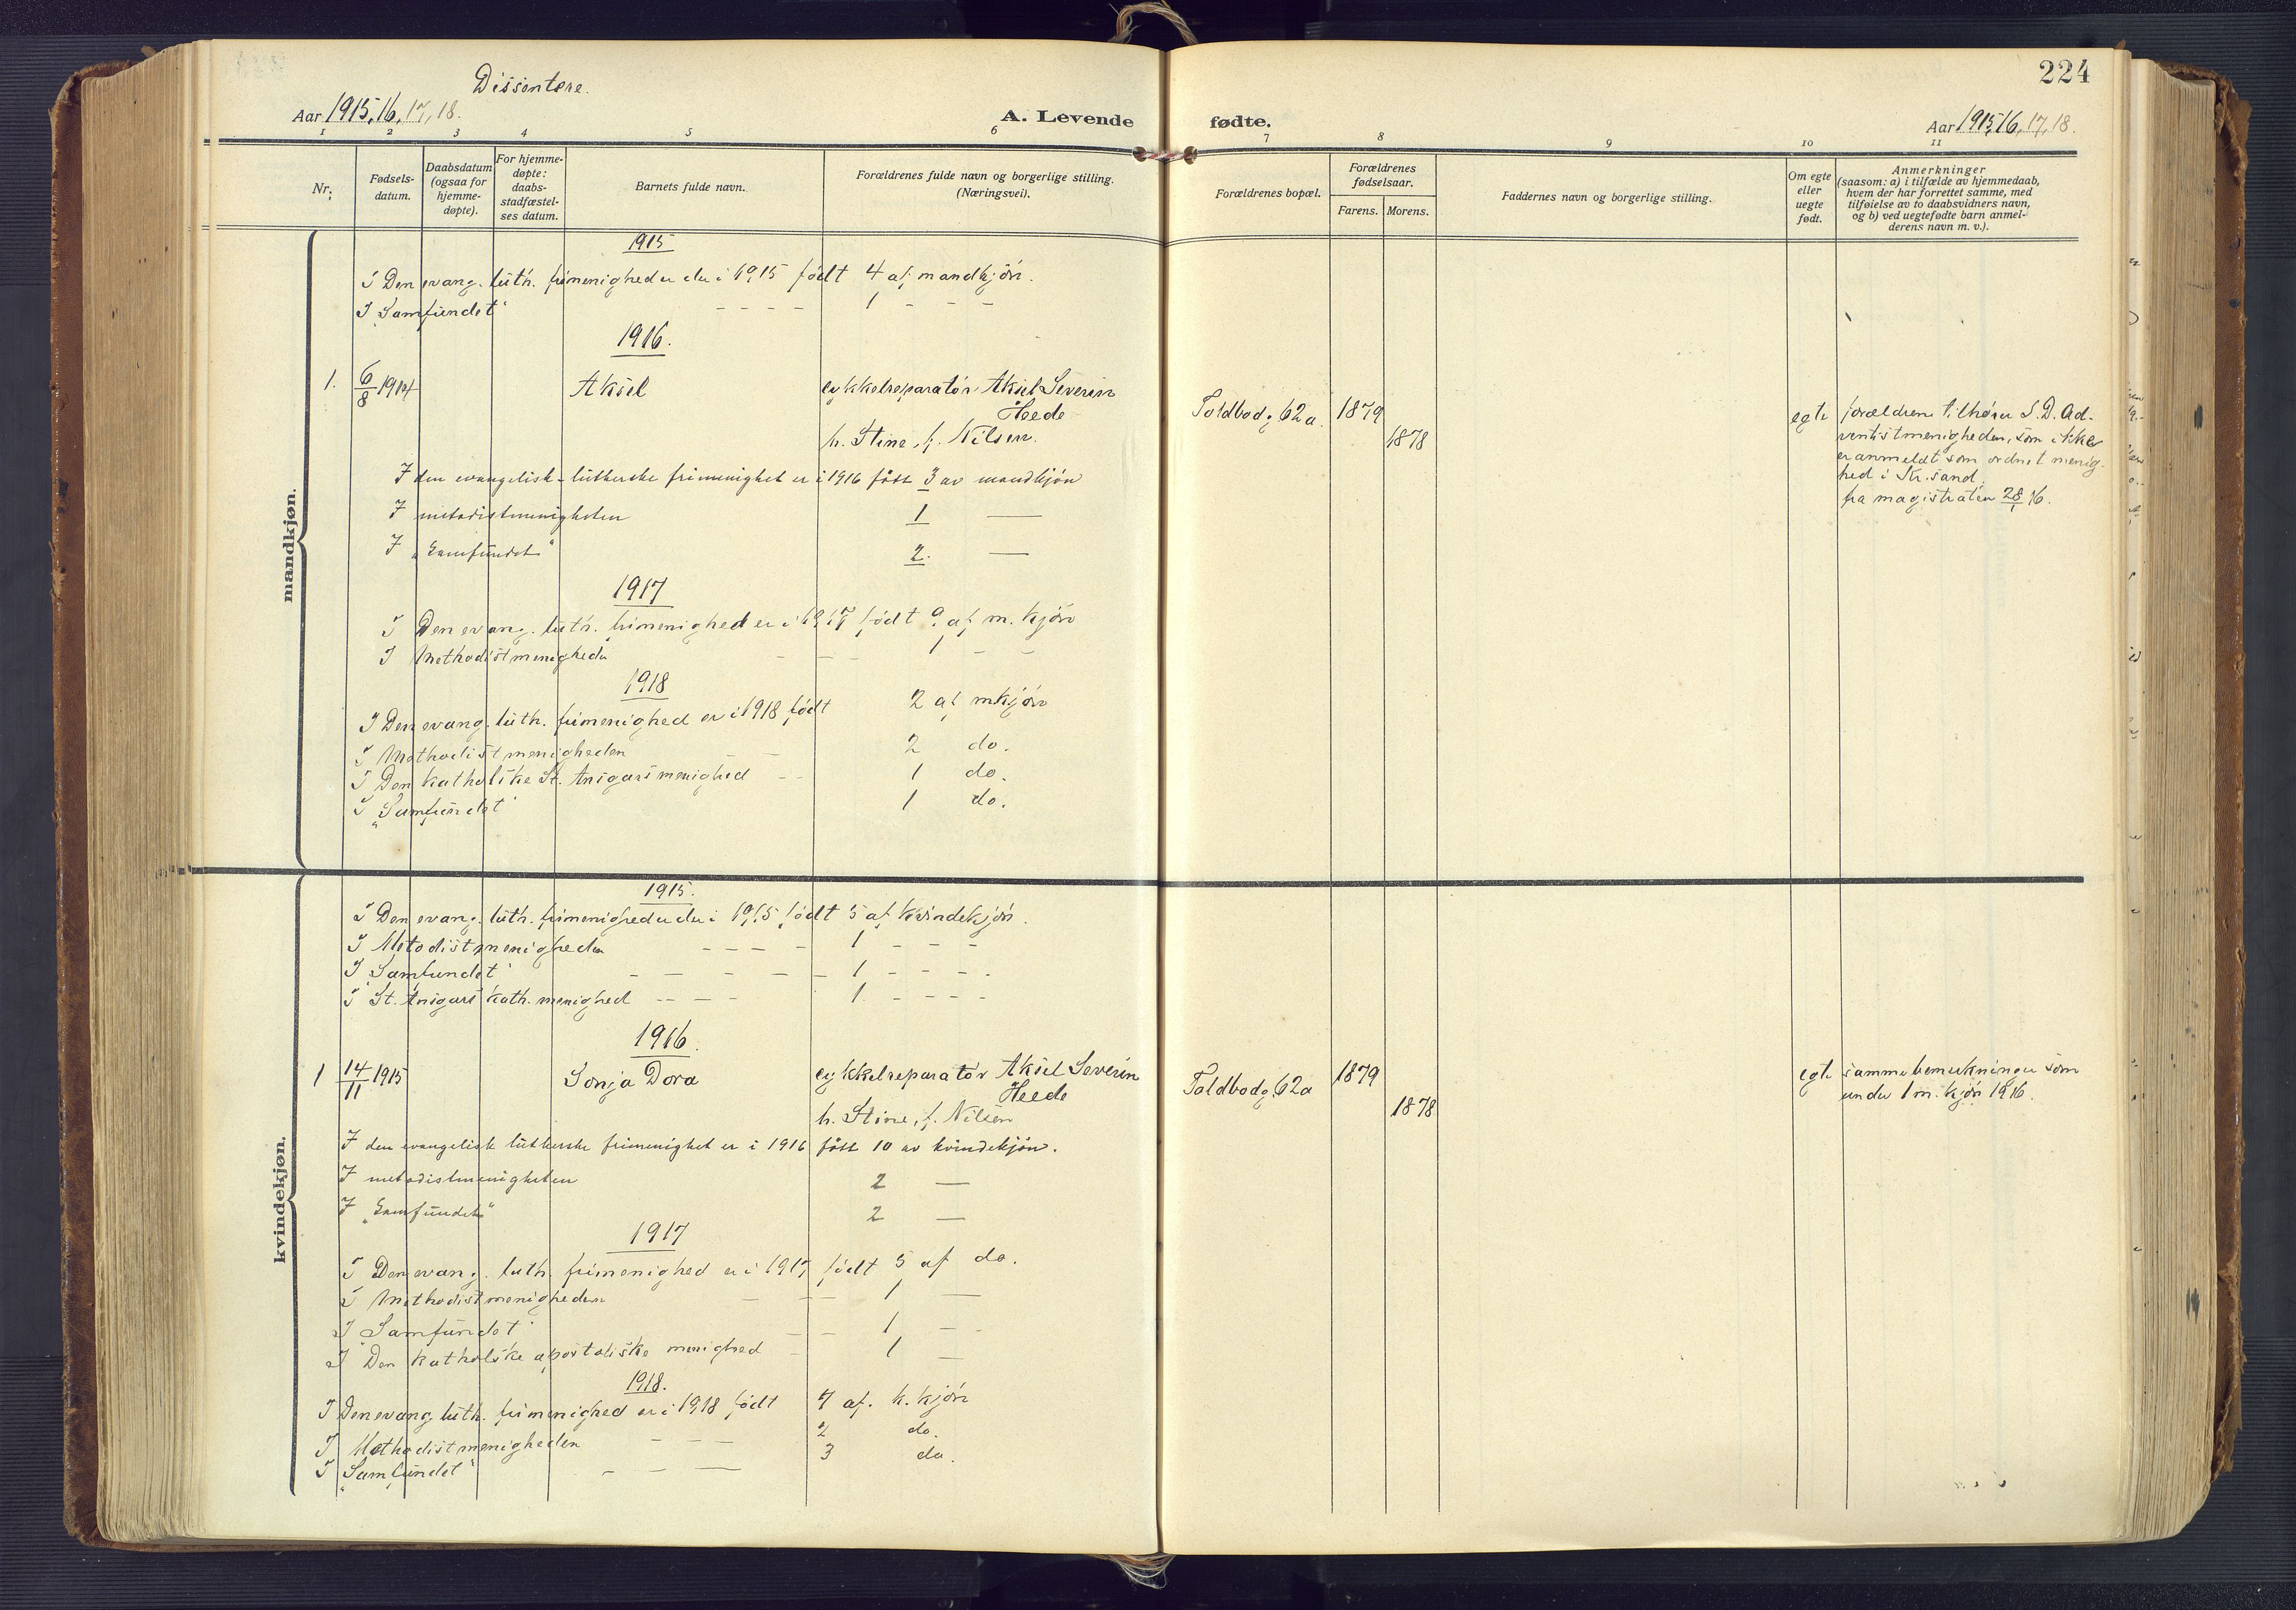 224
Dissentere.
Aar 1915, 16, 17, 18.
A. Levende fødte.
Aar 1915, 16, 17, 18.
1 2 3 4 5 6 7 8 9 10 11
Nr.
Fødsels-
datum.
Daabsdatum
(ogsaa for
hjemme-
døpte).
For hjemme-
døpte:
daabs-
stadfæstel-
ses datum.
Barnets fulde navn.
Forældrenes fulde navn og borgerlige stilling.
(Næringsvei).
Forældrenes bopæl.
Forældrenes
fødselsaar.
Farens. Morens.
Faddernes navn og borgerlige stilling.
Om egte
eller
uegte
født.
Anmerkninger
(saasom: a) i tilfælde av hjemmedaab,
hvem der har forrettet samme, med
tilføielse av to daabsvidners navn,
og b) ved uegtefødte barn anmel-
derens navn m. v.).
mandkjøn.
1915
I Den evang. luth. frimenighed er der i 1915 født 4 af mandkjön.
I „Samfundet“ - - - - 1 - - -
1916.
1. 6/8 1914 Aksel cykkelreparatör Aksel Severin
Heede
h. Stine, f. Nilsen.
Toldbodg. 62a. 1879
1878
egte
forældrene tilhører S. D. Ad-
ventistmenigheden, som ikke
er anmeldt som ordnet menig-
hed i Kr.sand.
fra magistraten 28/ 16.
I den evangelisk-lutherske frimenighet er i 1916 født 3 av mandkjön
I metodistmenigheten 1 —
I „Samfundet“ 2. —
1917
I Den evang. luth. frimenighed er i 1917 født 9 af m. kjön
I Methodistmenigheden - - - 1 - -
1918
I Den evang. luth. frimenighed er i 1918 født 2 af mkjön
I Methodistmenigheden - - 2 do.
I Den katholske St. Ansgars menighed - - 1 do.
I „Samfundet“ 1 do.
kvindekjøn.
1915.
I Den evang. luth. frimenighed er der i 1915 født 5 af kvindekjön.
I Metodistmenigheden - - - - 1 - - -
I „Samfundet“ - - - - - - 1 - - - -
I St. Ansgars kath. menighed - - - - 1 - - - -
1916.
1 14/11 1915 Sonja Dora cykkelreparatör Aksel Severin
Heede
h. Stine, f. Nilsen
Toldbodg. 62a 1879
1878
egte
samme bemerkninger som
under 1 m. kjön 1916.
I den evangelisk lutherske frimenighet er i 1916 født 10 av kvindekjön.
I metodistmenigheten 2 —
I „Samfundet“ 2 —
1917
I Den evang. luth. frimenighed er i 1917 født 5 af do.
I Methodistmenigheden - - - 1 —
I „Samfundet“ - - 1 - -
I Den katholske apostoliske menighed - 1 —
1918.
I Den evang. luth. frimenighed er i 1918 født 7 af. k. kjön
I Methodistmenigheden - - - 2 do.
I „Samfundet“ - - — 3 do.